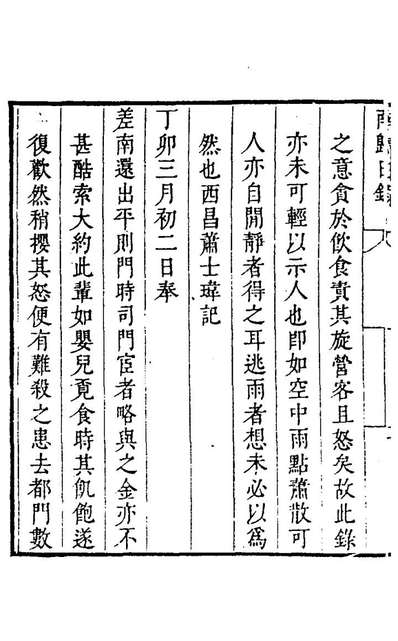 南歸日錄
之意貪於飲食責其旋營客且怒矣故此錄
亦未可輕以示人也卽如空中雨點蕭散可
人亦自閒靜者得之耳逃雨者想未必以爲
然也西昌蕭士瑋記
丁卯三月初二日奉
差南還出平則門時司門宦者略與之金亦不
甚酷索大約此輩如嬰兒覓食時其飢飽遂
復歡然稍攖其怒便有難殺之患去都門數